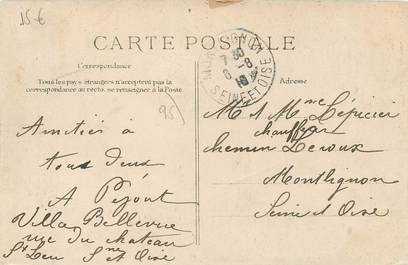 15 €
CARTE POSTALE
Correspondance
Tous les pays étrangers n'acceptent pas la
correspondance au recto, se renseigner à la Poste
Adresse
MONTLIGNON
7 30
6 - 8
SEINE ET OISE
95
Amitiés à
tous deux
A Péjout
Villa Bellevue
rue du chateau
St Leu Sne et Oise
Mr & Mme Lépicier
chauffeur
chemin Leroux
Montlignon
Seine et Oise